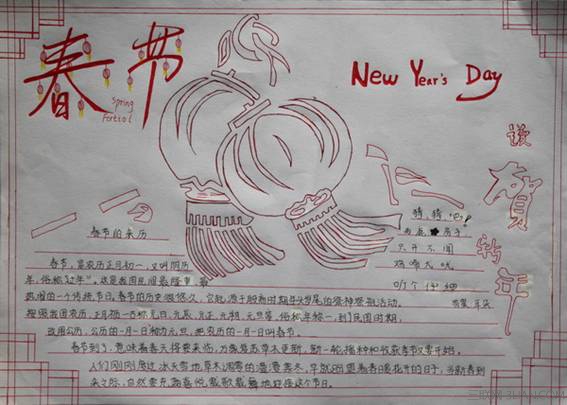 春节
Spring
Festiol
New Year's Day
谨贺新年
春节的来历
春节，是农历正月初一，又叫阴历
年，俗称"过年"。这是我国民间最隆重、最
热闹的一个传统节日。春节的历史很悠久，它起源于殷商时期年头岁尾的祭神祭祖活动。
按照我国农历，正月初一古称元日、元辰、元正、元朔、元旦等，俗称年初一，到了民国时期，
改用公历，公历的一月一日称为元旦，把农历的一月一日叫春节。
春节到了，意味着春天将要来临，万象复苏草木更新，新一轮播种和收获季节又要开始。
人们刚刚度过冰天雪地草木凋零的漫漫寒冬，早就盼望着春暖花开的日子，当新春到
来之际，自然要充满喜悦载歌载舞地迎接这个节日。
猜，猜，吧！
只开不闭